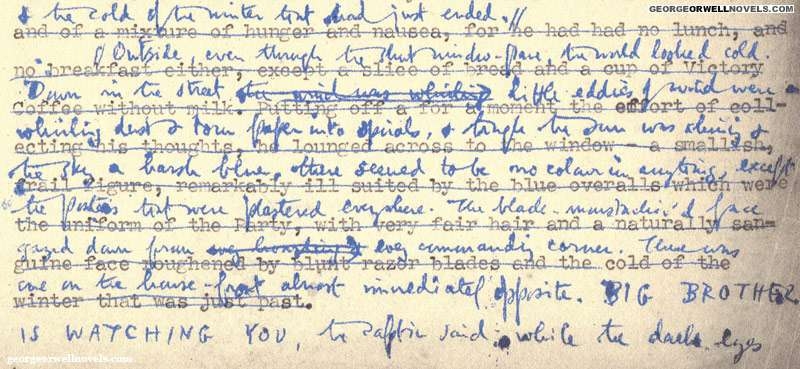 GEORGEORWELLNOVELS.COM
& the cold of the winter that had just ended.//
and of a mixture of hunger and nausea, for he had had no lunch, and
Outside, even through the shut window-pane, the world looked cold.
no breakfast either, except a slice of bread and a cup of Victory
Down in the street the wind was whirling little eddies of wind were
Coffee without milk. Putting off a for a moment the effort of coll-
whirling dust & torn paper into spirals, & though the sun was shining &
ecting his thoughts, he lounged across to the window - a smallish,
the sky a harsh blue, there seemed to be no colour in anything, except
frail figure, remarkably ill suited by the blue overalls which were
the posters that were plastered everywhere. The black-moustachio'd face
the uniform of the Party, with very fair hair and a naturally san-
gazed down from every commanding corner. There was
guine face roughened by blunt razor blades and the cold of the
one on the house-front almost immediately opposite. BIG BROTHER
winter that was just past.
IS WATCHING YOU, the caption said, while the dark eyes
georgeorwellnovels.com